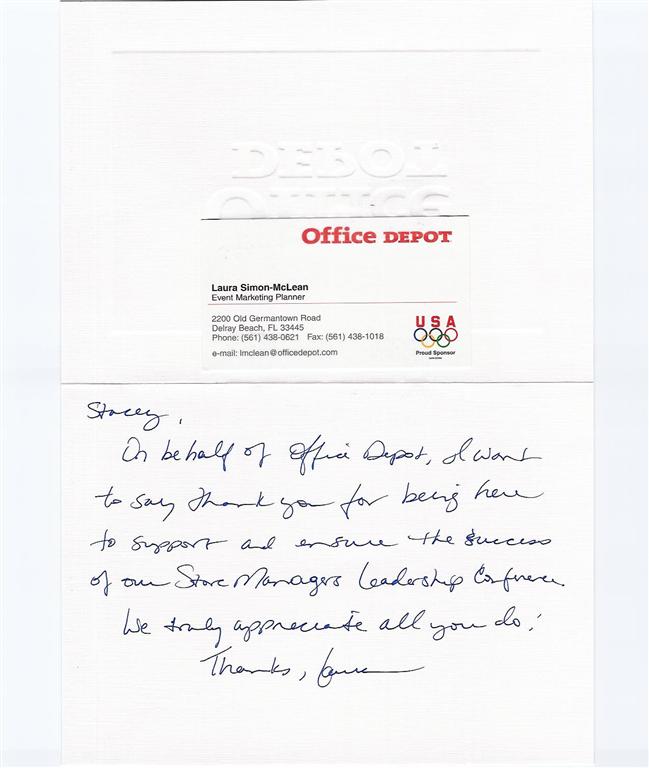 OFFICE
DEPOT
Office DEPOT
Laura Simon-McLean
Event Marketing Planner
2200 Old Germantown Road
Delray Beach, FL 33445
Phone: (561) 438-0621 Fax: (561) 438-1018
e-mail: lmclean@officedepot.com
USA
Proud Sponsor
Stacey,
On behalf of Office Depot, I want
to say thank you for being here
to support and ensure the success
of our Store Managers Leadership Conference
We truly appreciate all you do!
Thanks, Laura